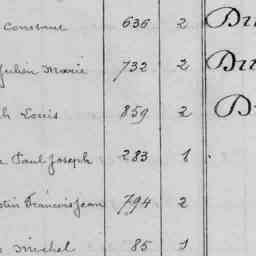 Constant 636 2 Du
Julien Marie 732 2 Du
h Louis 859 2 D
Paul Joseph 283 1
tin François Jean 794 2
Michel 85 1